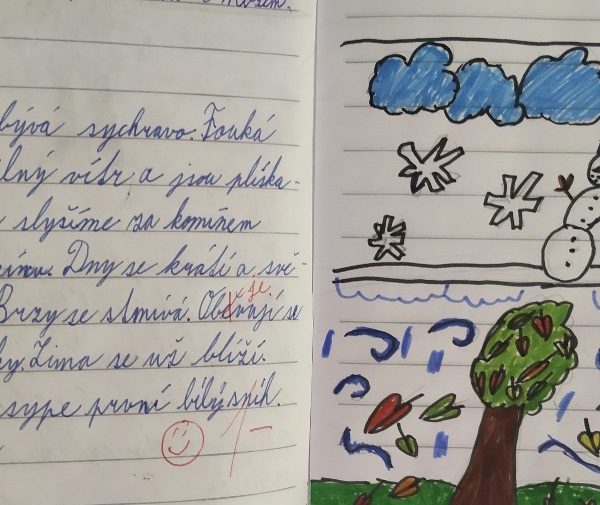 bývá sychravo. Fouká
lný vítr a jsou plíska-
slyšíme za komínem
Dny se krátí a svě-
je
Brzy se stmívá. se
ky. Zima se už blíží.
sype první bílý sníh.
1-